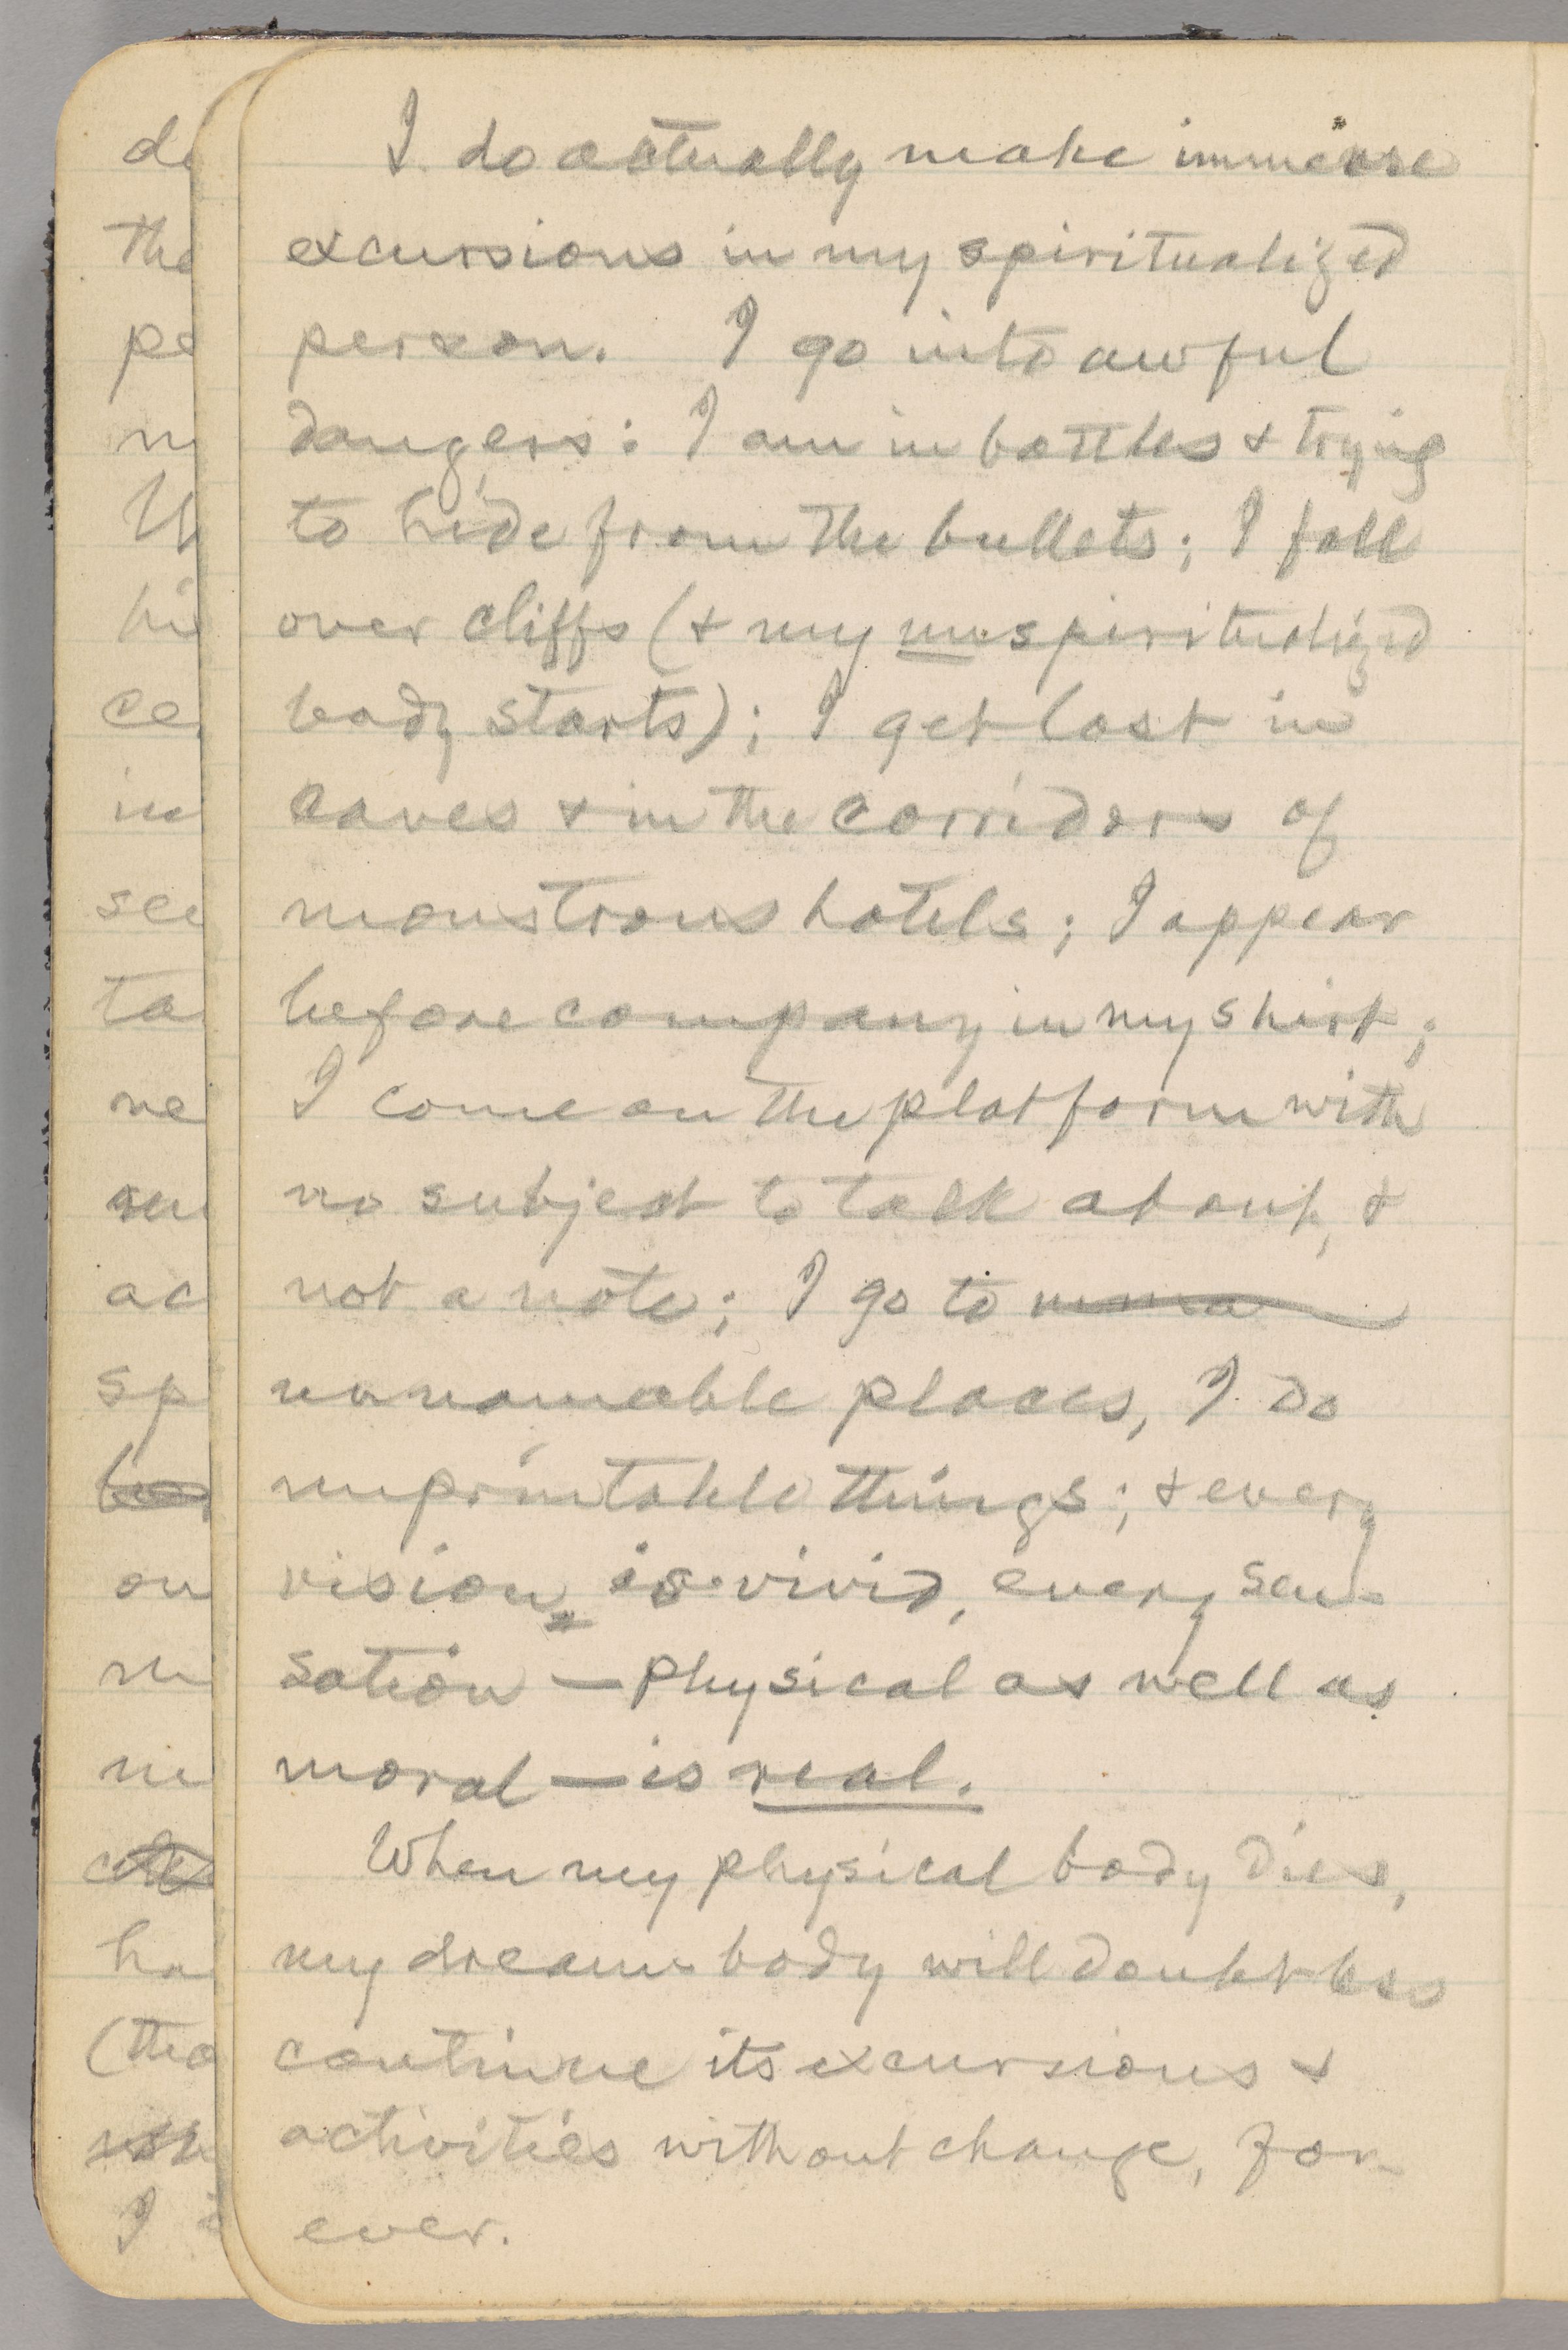 I do actually make immense
excursions in my spiritualized
person. I go into awful
dangers: I am in battles & trying
to hide from the bullets; I fall
over cliffs (& my unspiritualized
body starts); I get lost in
caves & in the corridors of
monstrous hotels; I appear
before company in my shirt;
I come on the platform with
no subject to talk about, &
not a note; I go to
unnameable places, I do
unprintable things; & every
vision is vivid, every sen-
sation — physical as well as
moral — is real.
When my physical body dies,
my dream-body will doubtless
continue its excursions &
activities without change, for-
ever.